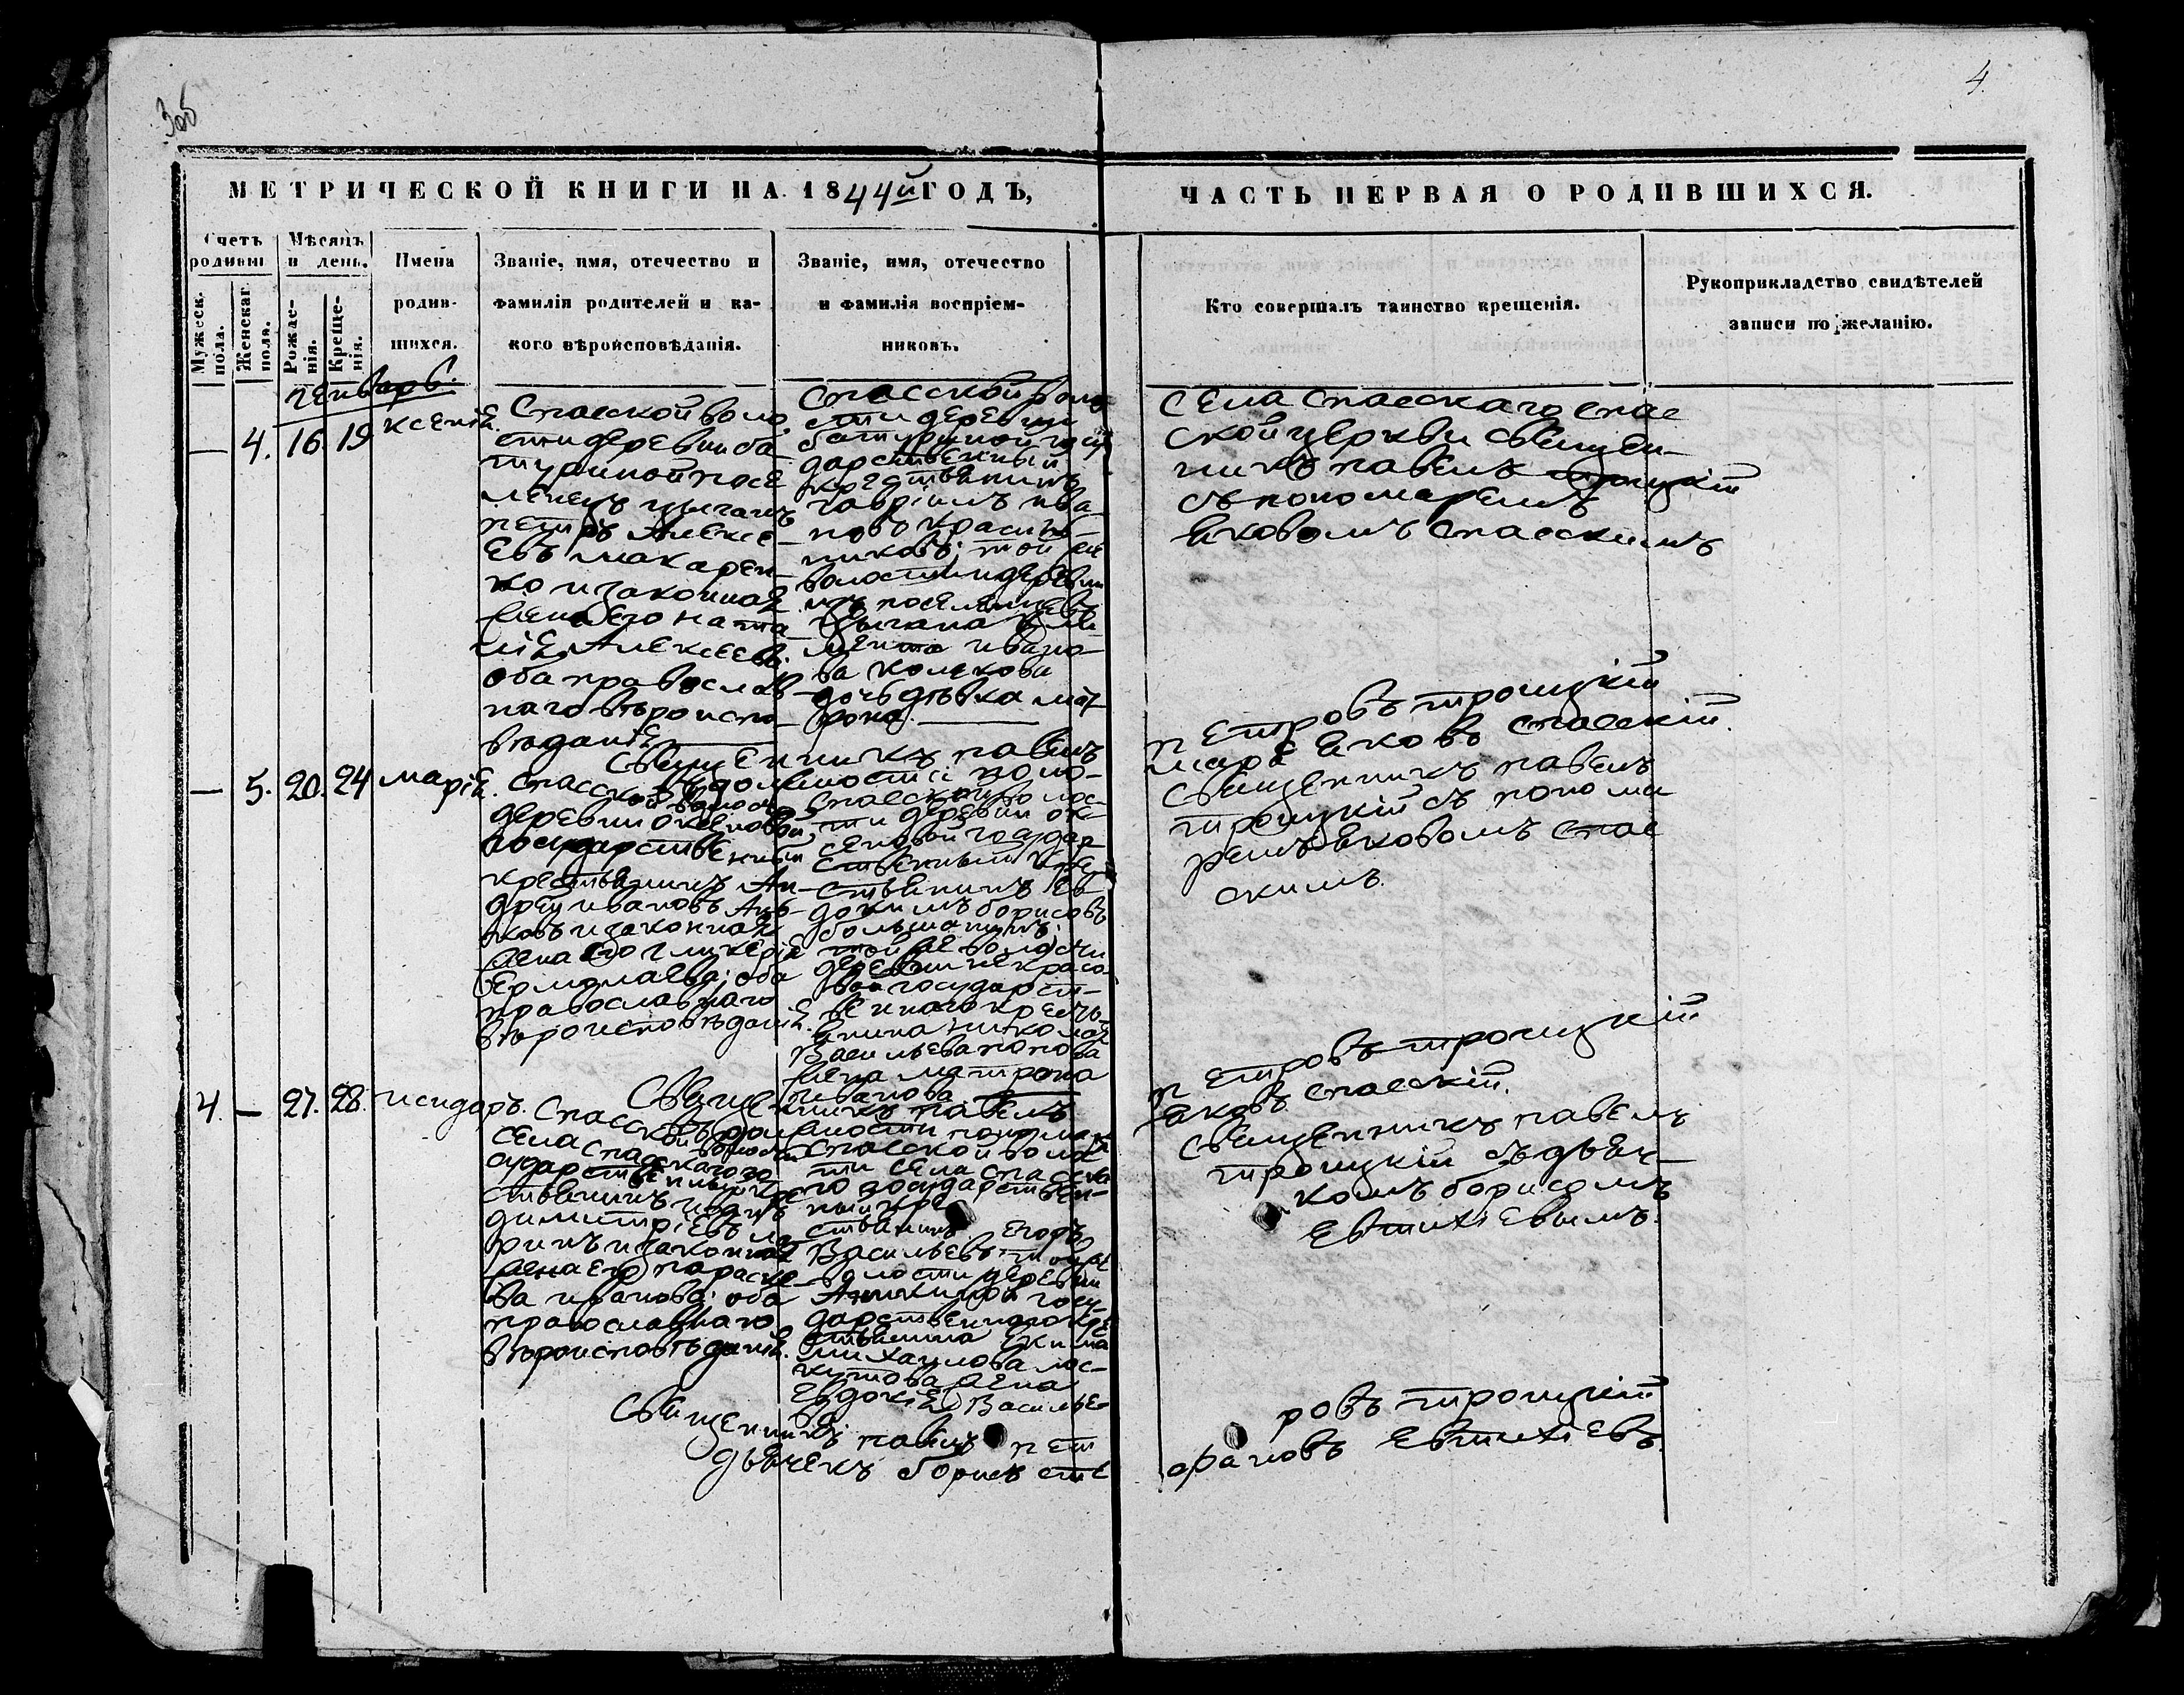 3об
4.
МЕТРИЧЕСКОЙ КНИГИ НА 1844й ГОДЪ,
ЧАСТЬ ПЕРВАЯ О РОДИВШИХСЯ.
Счетъ родивш
Мужеск. пола.
Женскаг пола.
Мѣсяцъ и день.
Рожде-нія.
Креще-нія.
Имена
родив-
шихся.
Званіе, имя, отечество и
фамилія родителей и ка-
кого вѣроисповѣданія.
Званіе, имя, отечество
и фамилія воспріем-
никовъ.
Кто совершалъ таинство крещенія.
Рукоприкладство свидѣтелей
записи по желанію.
генварь.
— 4. 16. 19 ксенія.
Спасской воло
сти деревни ба
туриной посе
ленецъ цыганъ
петръ Алексе
евъ макарен
ко и законная
жена его ната
лія Алексеева
оба православ
наго вѣроиспо
вѣданія
Спасской воло
сти деревни
батуриной госу
дарственный
крестьянинъ
гавріилъ ива
новъ красиль
никовъ; той же
волости и деревни
изъ поселенцевъ
цыгана
ивано
ва
дочь дѣвка мат
рона.
Села Спасскаго спас
ской церкви священ
никъ павелъ троицкій
съ пономаремъ
яковомъ спасскимъ
Священникъ павелъ
петровъ троицкій
въ должности поно-
маря яковъ спасскій.
— 5. 20. 24 марія.
Спасской волости
деревни оксеновой
государственный
крестьянинъ Ан-
дрей ивановъ
и законная
жена его гликерія
ермолаева; оба
православнаго
вѣроисповѣданія.
Спасской волос-
ти деревни окс
еновой государ
ственный кре
стьянинъ ев
докимъ борисовъ
большанинъ;
той же волости
деревни некрасо
вой государст-
веннаго кресть
янина николая
Васильева попова
жена матрона
иванова.
Священникъ павелъ
троицкій съ понома
ремъ яковомъ спас
скимъ.
Священникъ павелъ
петровъ троицкій
въ должности пономаря
яковъ спасскій.
4. — 27. 28. исидоръ.
Спасской волости
села спасскаго го
сударственный кре
стьянинъ иванъ
димитріевъ
и законная
жена его параске
ва иванова; оба
православнаго
вѣроисповѣданія.
Спасской волос
ти села спасска
го государствен-
ный кре
стьянинъ егоръ
Васильевъ; той же
волости деревни
Аникиной госу-
дарственнаго кре
стьянина екима
михаилова лос-
кутова жена
евдокія Василье
ва
Священникъ павелъ
троицкій съ дьяч-
комъ борисомъ
евтихіевымъ.
Священникъ павелъ пет
ровъ троицкій
дьячекъ борисъ сте
фановъ евтихіевъ.